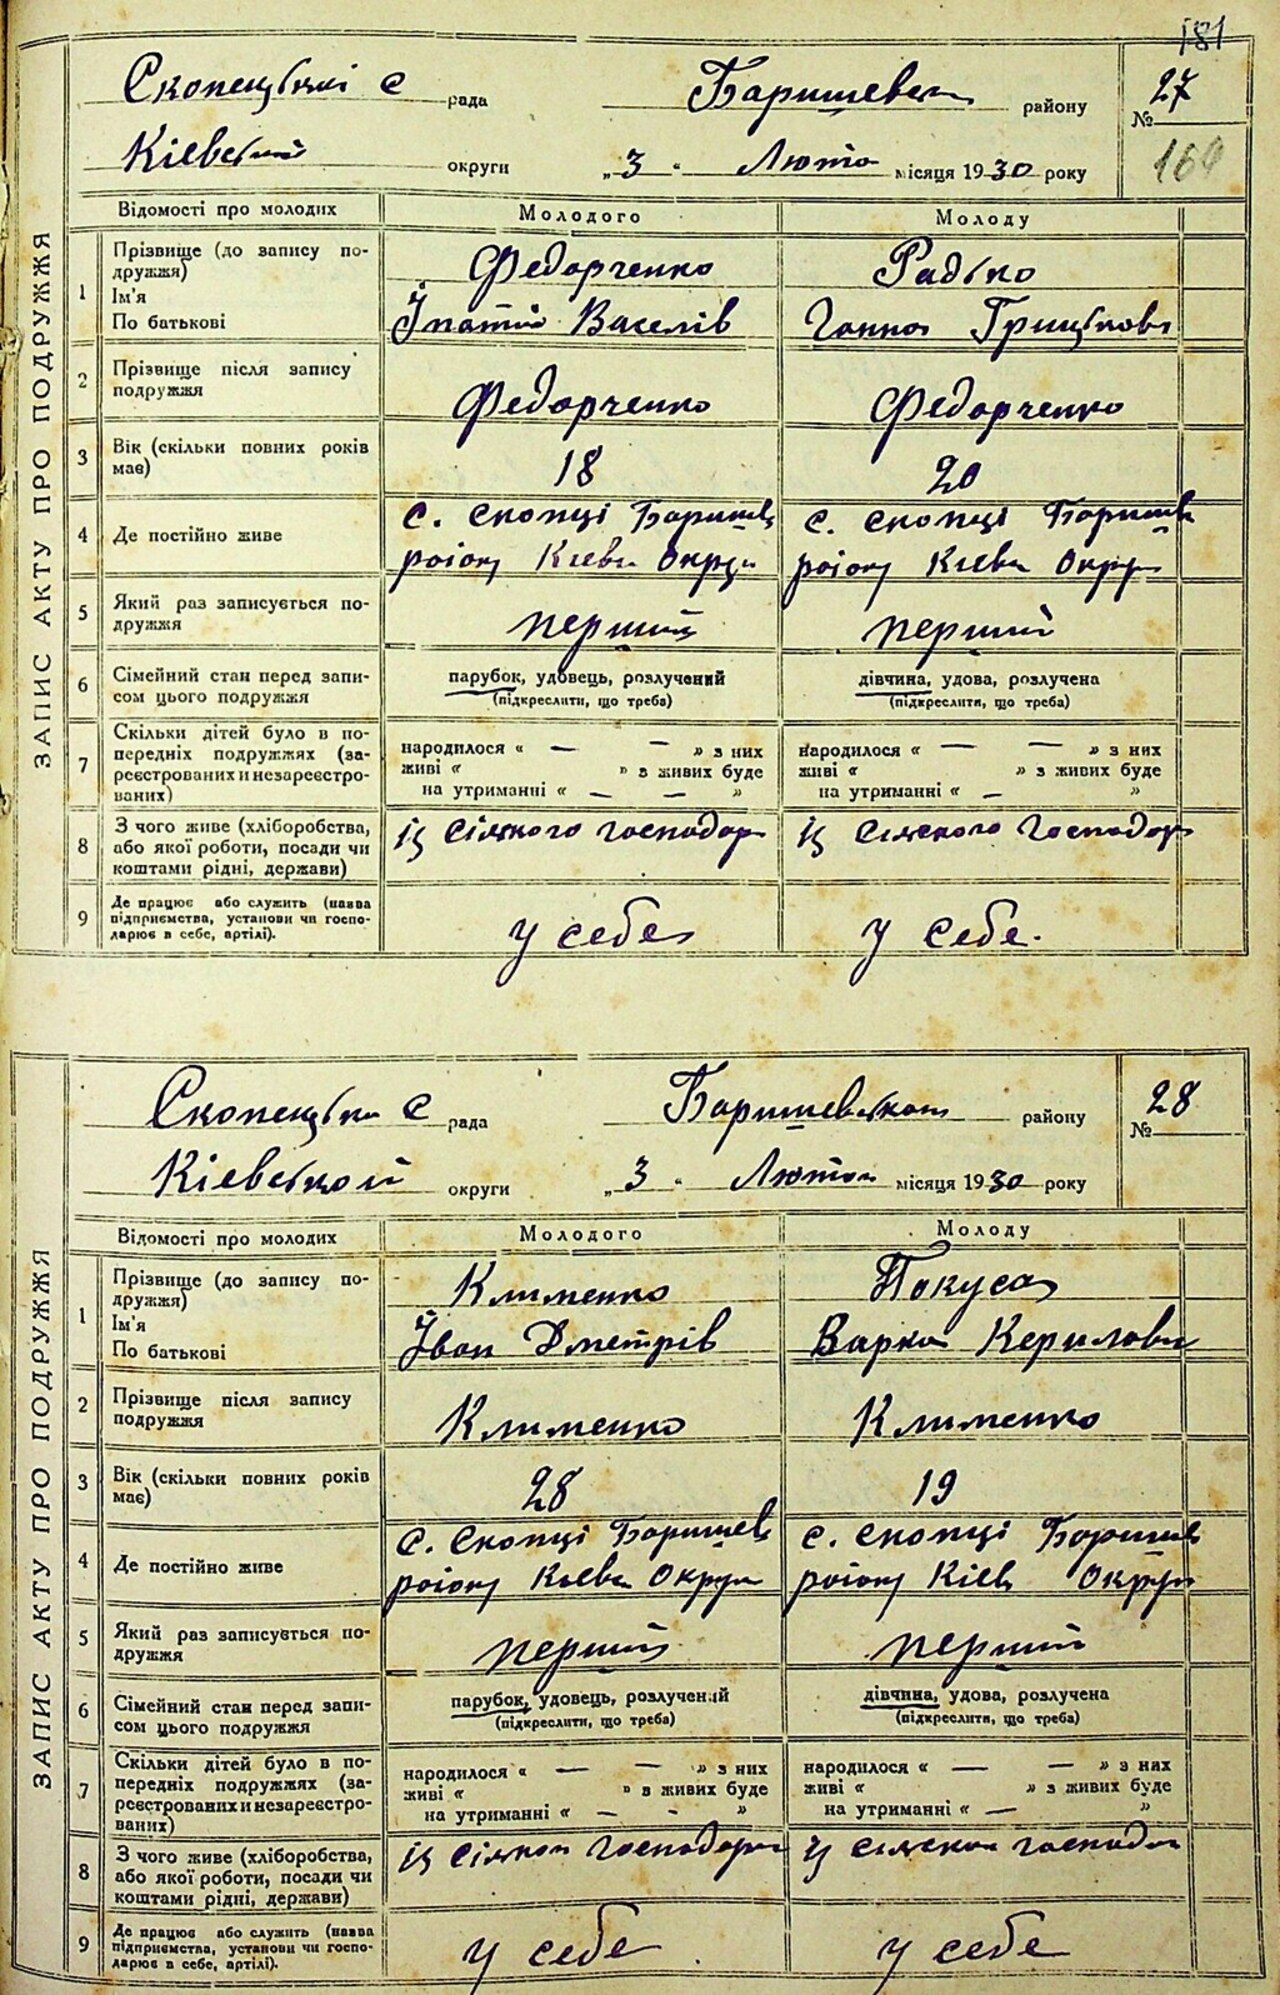 181
Скопецькі с рада Баришевськ району № 27
Кіевський округи „3“ Люто місяця 1930 року 160
ЗАПИС АКТУ ПРО ПОДРУЖЖЯ
Відомості про молодих Молодого Молоду
1 Прізвище (до запису по-
дружжя) Федорченко Радько
Ім'я
По батькові Іпатій Васелів Ганна Грицькова
2 Прізвище після запису
подружжя Федорченко Федорченко
3 Вік (скільки повних років
має) 18 20
4 Де постійно живе с. Скопці Баришев с. Скопці Баришев
раіону Киевс Округи раіону Киевс Округи
5 Який раз записується по-
дружжя перший перший
6 Сімейний стан перед запи-
сом цього подружжя парубок, удовець, розлучений дівчина, удова, розлучена
(підкреслити, що треба) (підкреслити, що треба)
7 Скільки дітей було в по-
передніх подружжях (за-
реєстрованих и незареєстро-
ваних) народилося « — — » з них народилося « — — » з них
живі « » в живих буде живі « » з живих буде
на утриманні « — — » на утриманні « — »
8 З чого живе (хліборобства,
або якої роботи, посади чи
коштами рідні, держави) із сілского господар із сілского господар
9 Де працює або служить (назва
підприємства, установи чи госпо-
дарює в себе, артілі). у себе у себе.
Скопецьки с рада Баришевського району № 28
Кіевськой округи „3“ Лютого місяця 1930 року
ЗАПИС АКТУ ПРО ПОДРУЖЖЯ
Відомості про молодих Молодого Молоду
1 Прізвище (до запису по-
дружжя) Клименко Покуса
Ім'я
По батькові Іван Дметрів Варка Керилова
2 Прізвище після запису
подружжя Клименко Клименко
3 Вік (скільки повних років
має) 28 19
4 Де постійно живе с. Скопці Баришев с. Скопці Баришев
раіону Киевс Округи раіону Кіев Округи
5 Який раз записується по-
дружжя перший перший
6 Сімейний стан перед запи-
сом цього подружжя парубок, удовець, розлучений дівчина, удова, розлучена
(підкреслити, що треба) (підкреслити, що треба)
7 Скільки дітей було в по-
передніх подружжях (за-
реєстрованих и незареєстро-
ваних) народилося « — — » з них народилося « — — » з них
живі « » в живих буде живі « » з живих буде
на утриманні « — - » на утриманні « — »
8 З чого живе (хліборобства,
або якої роботи, посади чи
коштами рідні, держави) із сілског господар із сілског господа
9 Де працює або служить (назва
підприємства, установи чи госпо-
дарює в себе, артілі). у себе у себе